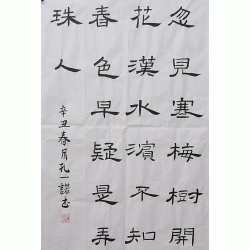 忽見塞梅樹開
花漢水濵不知
春色早疑是弄
珠人
辛丑春月孔一諾书